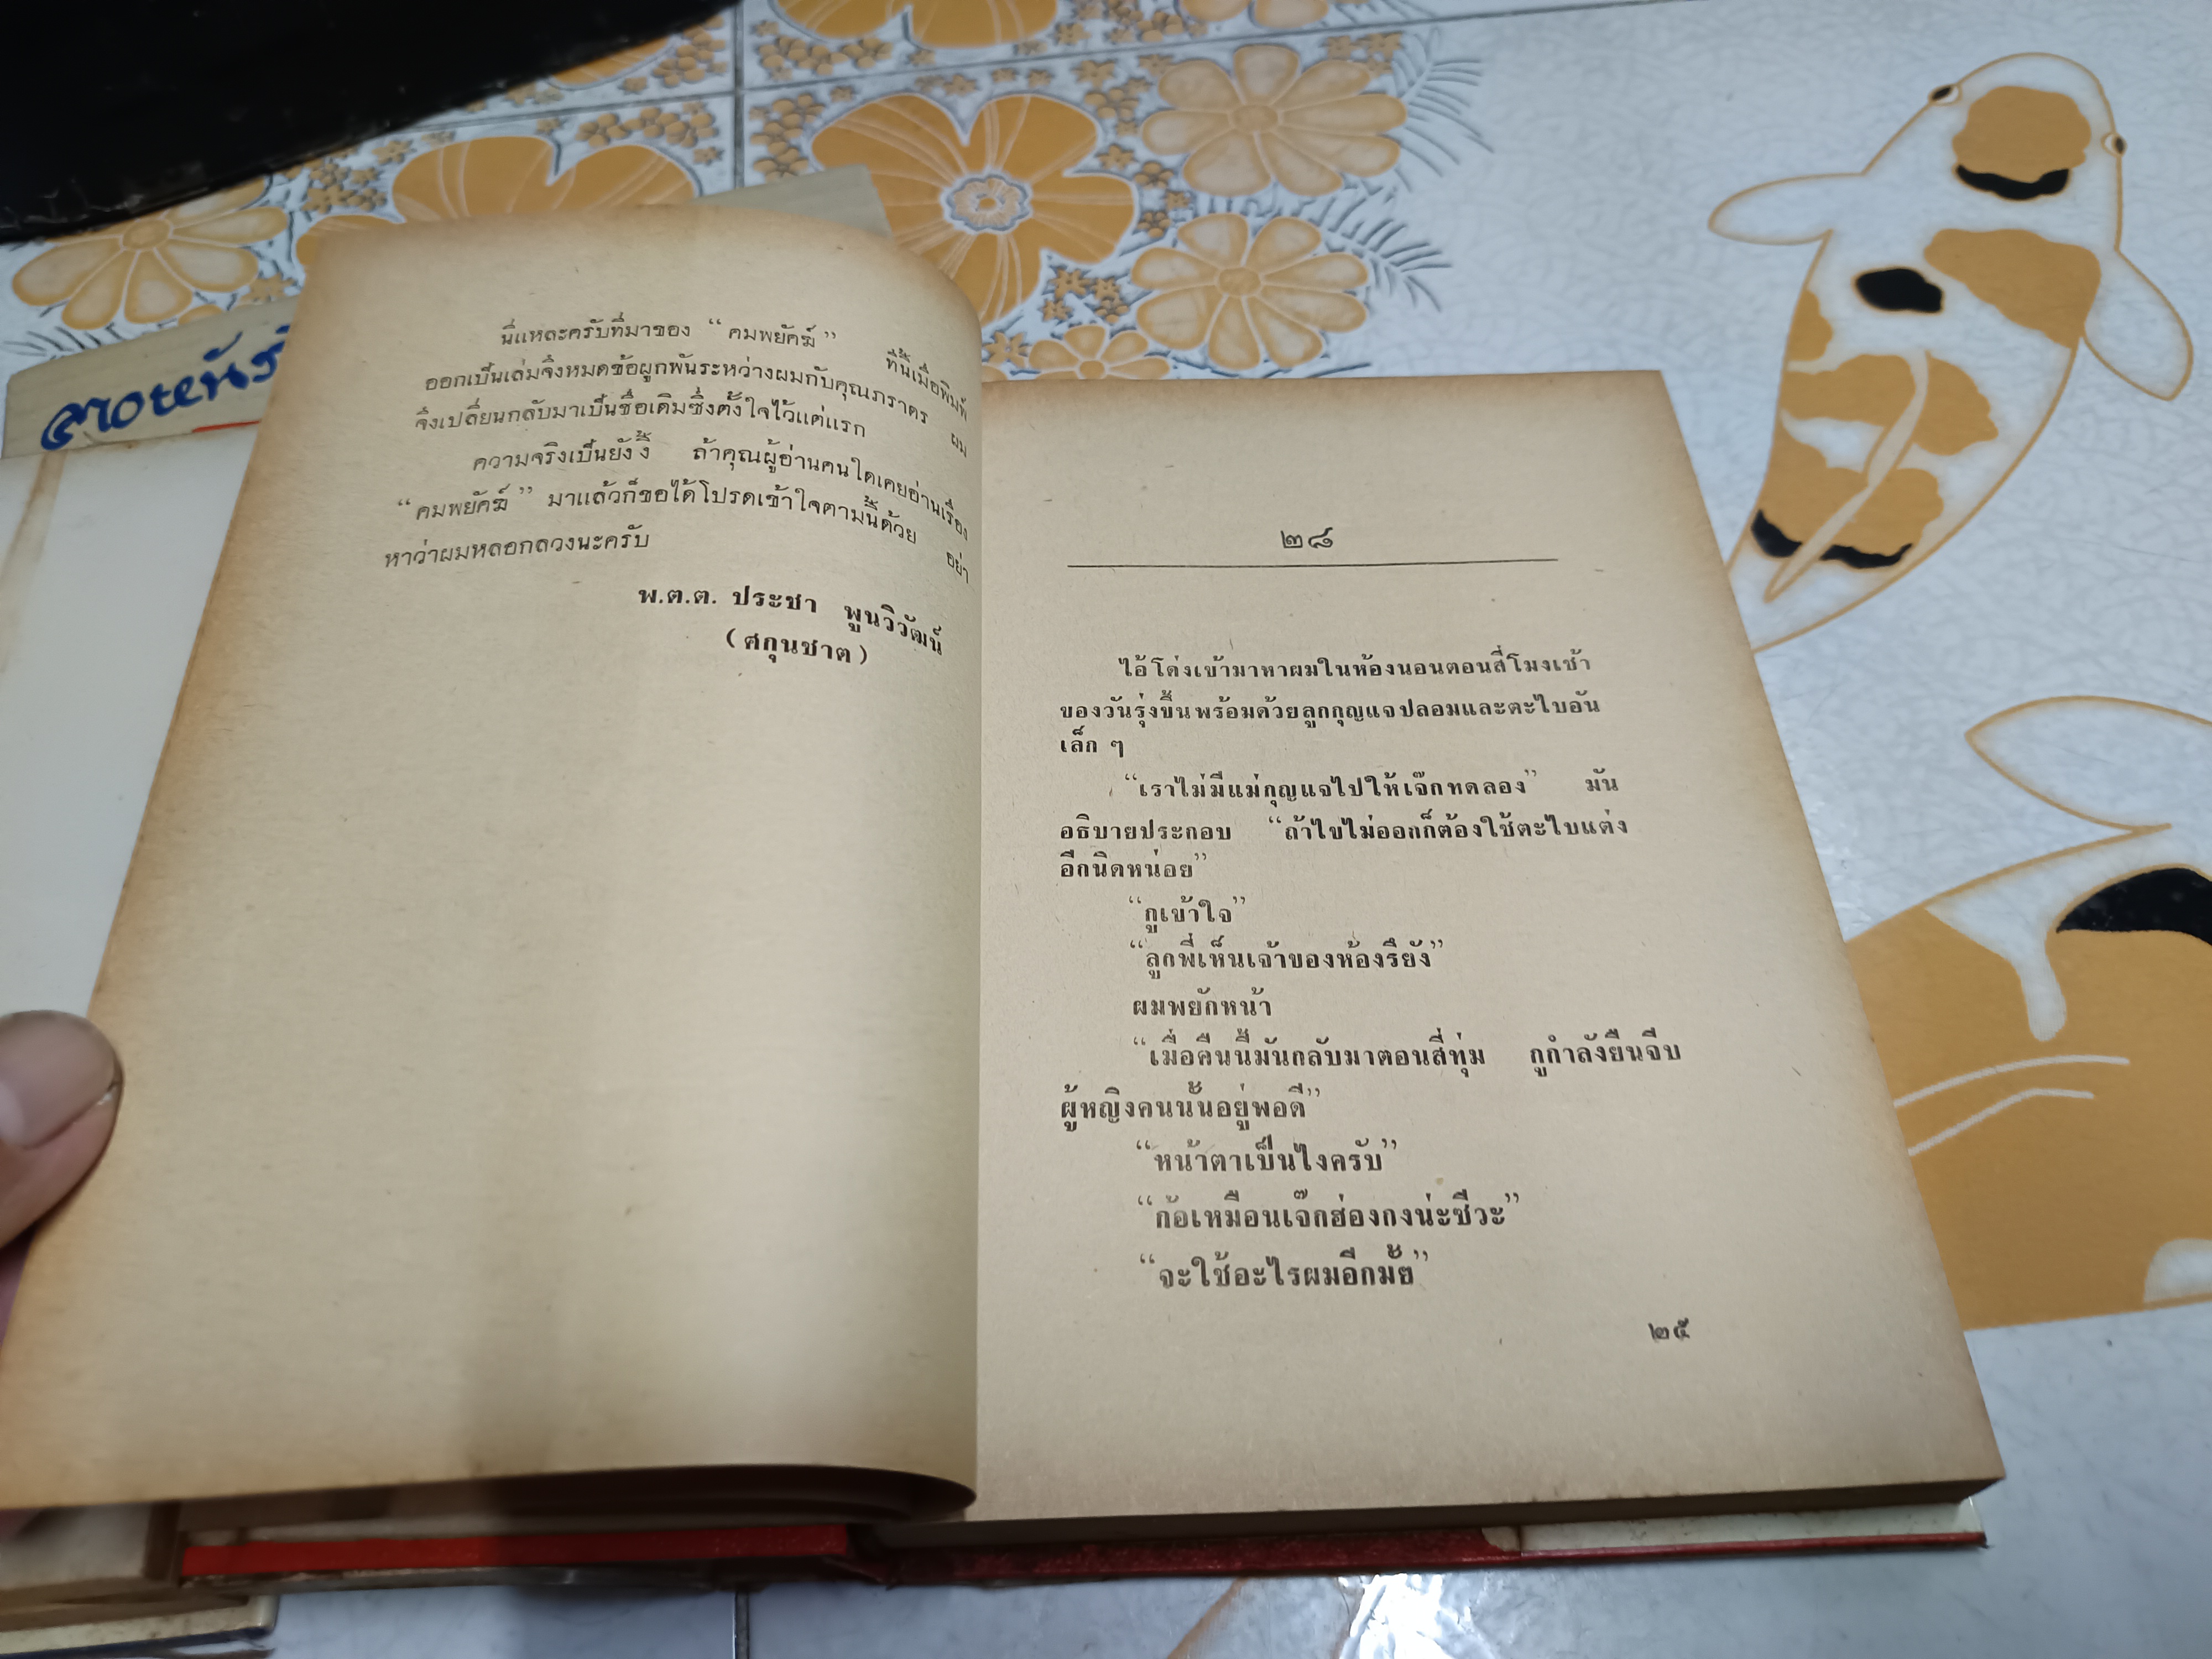 สองหน้า
นี่แหละครับที่มาของ “คมพยัคฆ์” ทีนี้เมื่อพิมพ์
ออกเป็นเล่มจึงหมดข้อผูกพันระหว่างผมกับคุณภราดร ผม
จึงเปลี่ยนกลับมาเป็นชื่อเดิมซึ่งตั้งใจไว้แต่แรก
ความจริงเป็นยังงี้ ถ้าคุณผู้อ่านคนใดเคยอ่านเรื่อง
“คมพยัคฆ์” มาแล้วก็ขอได้โปรดเข้าใจตามนี้ด้วย อย่า
หาว่าผมหลอกลวงนะครับ
พ.ต.ต. ประชา พูนวิวัฒน์
(ศกุนชาต)
๒๘
ไอ้โด่งเข้ามาหาผมในห้องนอนตอนสี่โมงเช้า
ของวันรุ่งขึ้นพร้อมด้วยลูกกุญแจปลอมและตะไบอัน
เล็ก ๆ
“เราไม่มีแม่กุญแจไปให้เจ๊กทดลอง” มัน
อธิบายประกอบ “ถ้าไขไม่ออกก็ต้องใช้ตะไบแต่ง
อีกนิดหน่อย”
“กูเข้าใจ”
“ลูกพี่เห็นเจ้าของห้องรึยัง”
ผมพยักหน้า
“เมื่อคืนนี้มันกลับมาตอนสี่ทุ่ม กูกำลังยืนจีบ
ผู้หญิงคนนั้นอยู่พอดี”
“หน้าตาเป็นไงครับ”
“ก้อเหมือนเจ๊กฮ่องกงน่ะซีวะ”
“จะใช้อะไรผมอีกมั้ย”
๒๕